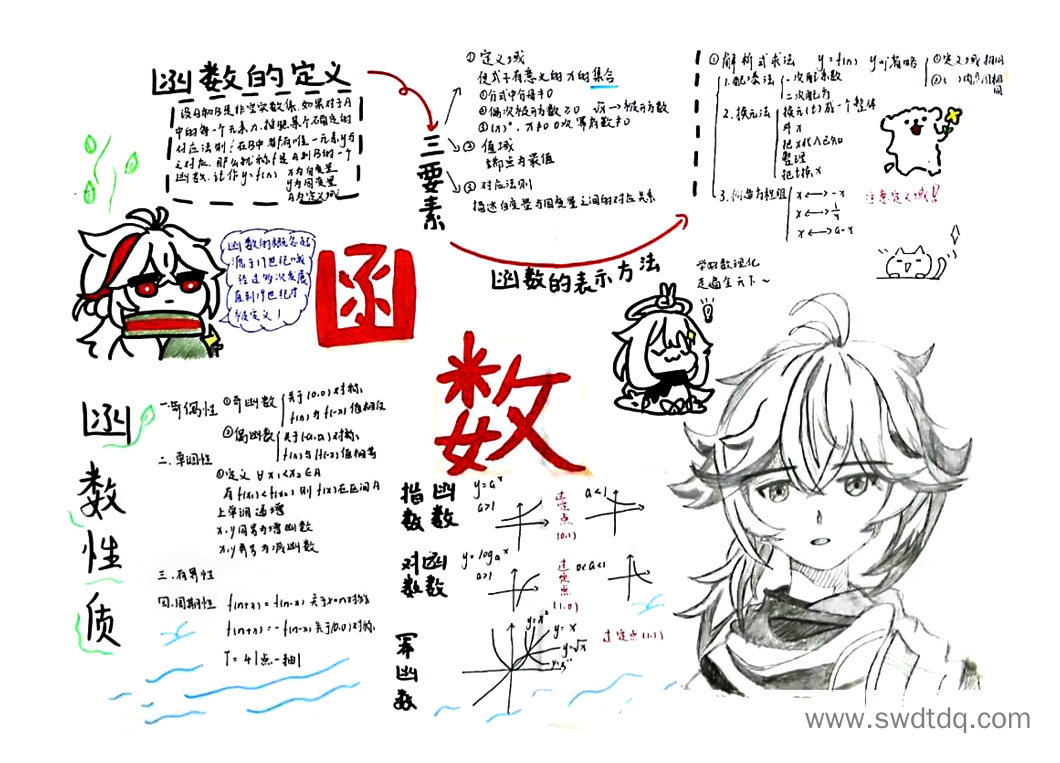 函数的定义
设A和B是非空实数集,如果对于A
中的每个元素x,按照某个确定的
对应法则f在B中都有唯一元素y与
之对应,那么就称f是A到B的一个
函数.记作y=f(x)
x为自变量
y为因变量
A为定义域
三要素
①定义域
使式子有意义的x的集合
①分式中分母≠0
②偶次被开方数≥0 √x→被开方数
②值域
③对应法则
描述自变量与因变量之间的对应关系
函数的表示方法
①解析式求法 y=f(x) y可省略
①定义域相同
1.配凑法
二次配方
2.换元法
换元(t)成一个整体
把x代入已知
整理
把t换x
x⟷-x
x⟷1/x
x⟷a-x
注意定义域!!
函数的概念起
源于17世纪
直到19世纪才
被定义!
函
数
学好数理化
走遍全天下~
函数性质
一.奇偶性
①奇函数
关于(0,0)对称
f(x)与f(-x)值相反
②偶函数
二.单调性
①定义 ∀x₁<x₂∈A
有f(x₁)<f(x₂)则f(x)在区间A
上单调递增
x,y同号为增函数
x,y异号为减函数
四.周期性
T=4|点-轴|
指数函数
y=aˣ
a>1
过定点
(0,1)
a<1
对数函数
y=logₐx
a>1
过定点
(1,0)
0<a<1
幂函数
y=x²
y=x
y=√x
y=x⁻¹
过定点(1,1)
www.swdtdq.com